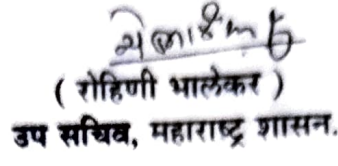 ( रोहिणी भालेकर )
उप सचिव, महाराष्ट्र शासन.